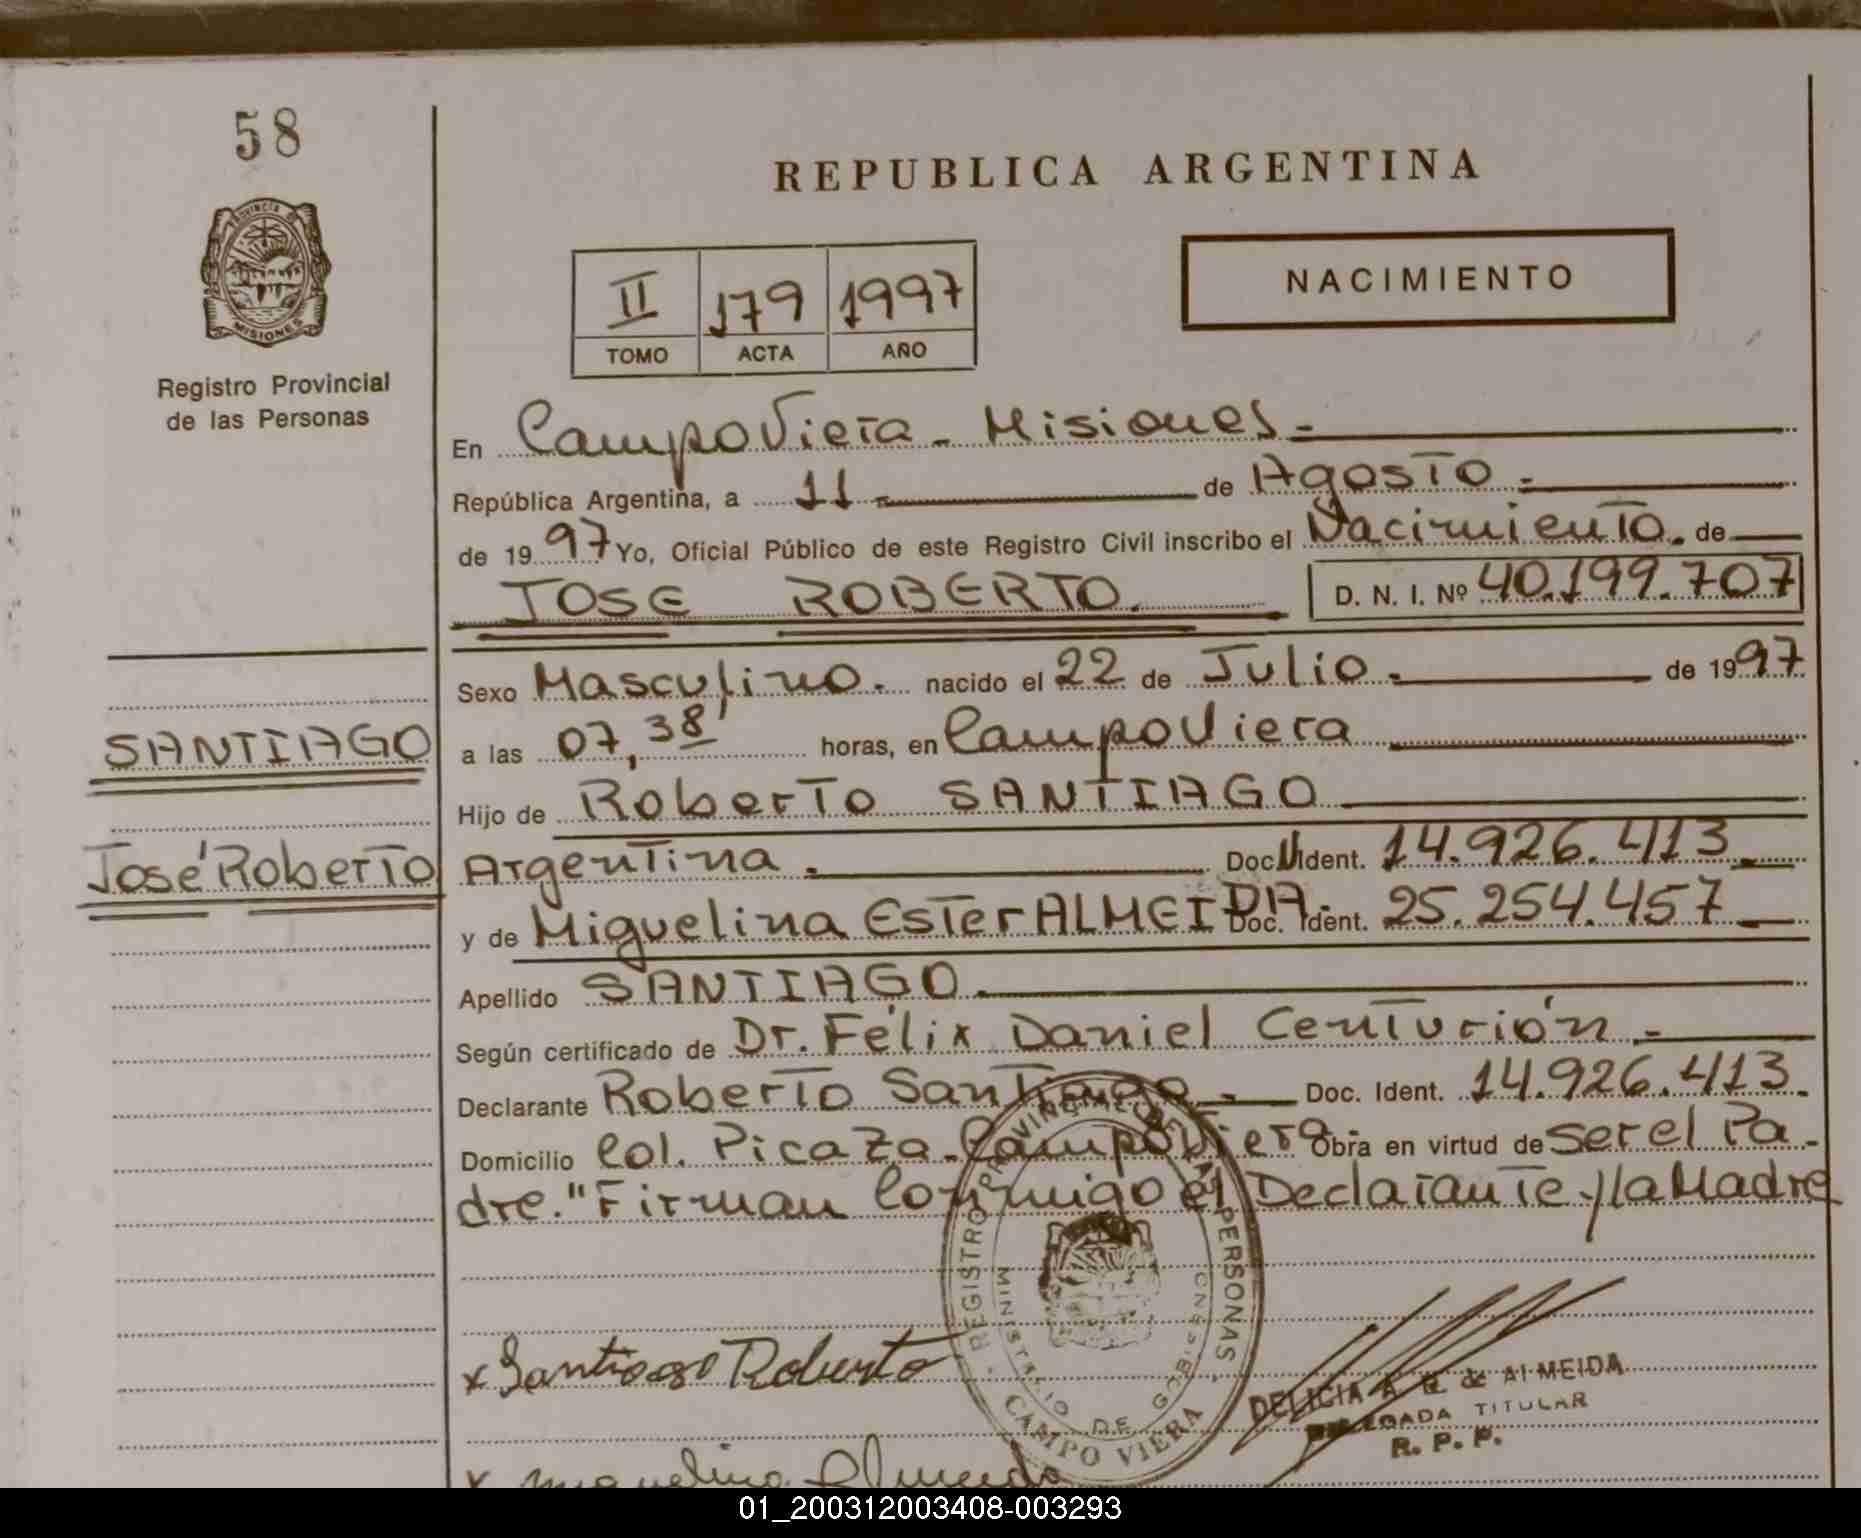 58
REPUBLICA ARGENTINA
PROVINCIA DE
MISIONES
Registro Provincial
de las Personas
II 179 1997
TOMO ACTA AÑO
NACIMIENTO
En Campo Viera - Misiones.-
República Argentina, a 11 de Agosto.-
de 1997 Yo, Oficial Público de este Registro Civil inscribo el Nacimiento. de
JOSE ROBERTO. D. N. I. Nº 40.199.707
Sexo Masculino. nacido el 22 de Julio.- de 1997
SANTIAGO
a las 07,38' horas, en Campo Viera
Hijo de Roberto SANTIAGO
José Roberto
Argentina.- Doc. Ident. 14.926.413.-
y de Miguelina Ester ALMEIDA.- Doc. Ident. 25.254.457
Apellido SANTIAGO.-
Según certificado de Dr. Félix Daniel Centurión.-
Declarante Roberto Santiago.- Doc. Ident. 14.926.413.
Domicilio Col. Picaza-Campo Viera Obra en virtud de ser el Pa-
dre." Firman Conmigo el Declarante y la Madre
REGISTRO PROVINCIAL DE LAS PERSONAS
MINISTERIO DE GOBIERNO
CAMPO VIERA
x Santiago Roberto
DELICIA A. de ALMEIDA
DELEGADA TITULAR
R. P. P.
x Miguelina Almeida
01_200312003408-003293